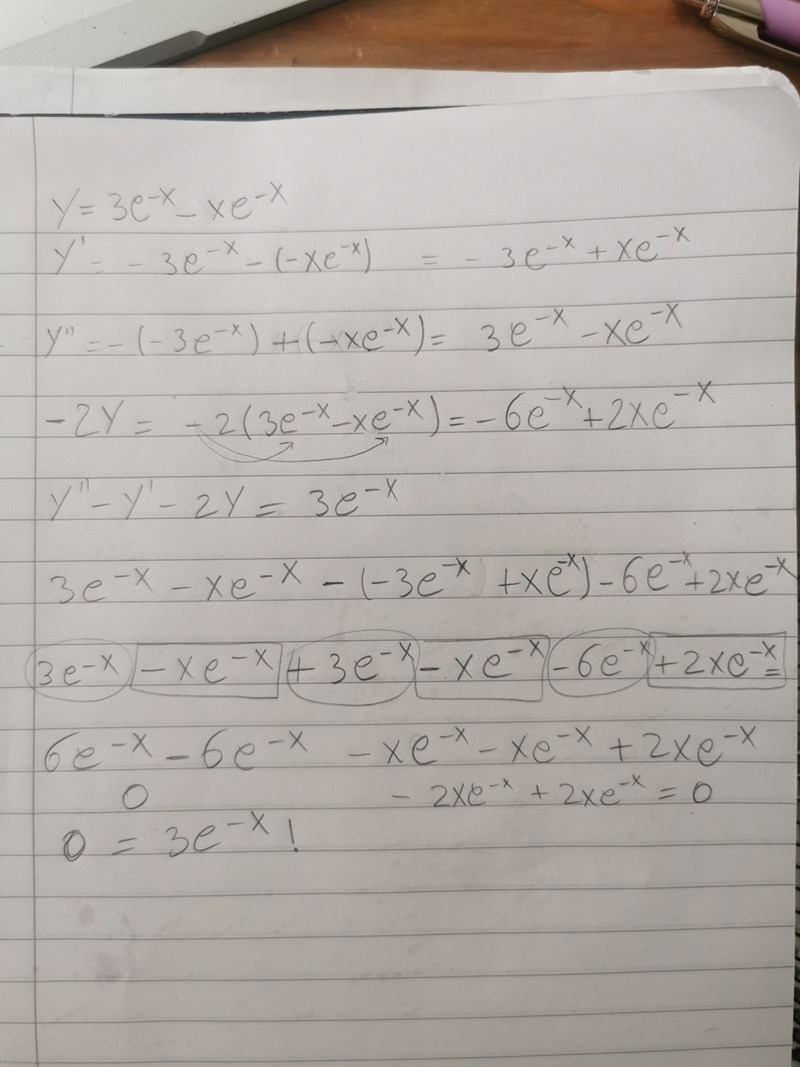 Y = 3e^-x - xe^-x
Y' = - 3e^-x - (-xe^-x) = - 3e^-x + xe^-x
Y'' = - (-3e^-x) + (-xe^-x) = 3e^-x - xe^-x
-2Y = -2(3e^-x - xe^-x) = -6e^-x + 2xe^-x
Y'' - Y' - 2Y = 3e^-x
3e^-x - xe^-x - (-3e^-x + xe^-x) - 6e^-x + 2xe^-x
3e^-x - xe^-x + 3e^-x - xe^-x - 6e^-x + 2xe^-x =
6e^-x - 6e^-x - xe^-x - xe^-x + 2xe^-x
0 - 2xe^-x + 2xe^-x = 0
0 = 3e^-x !